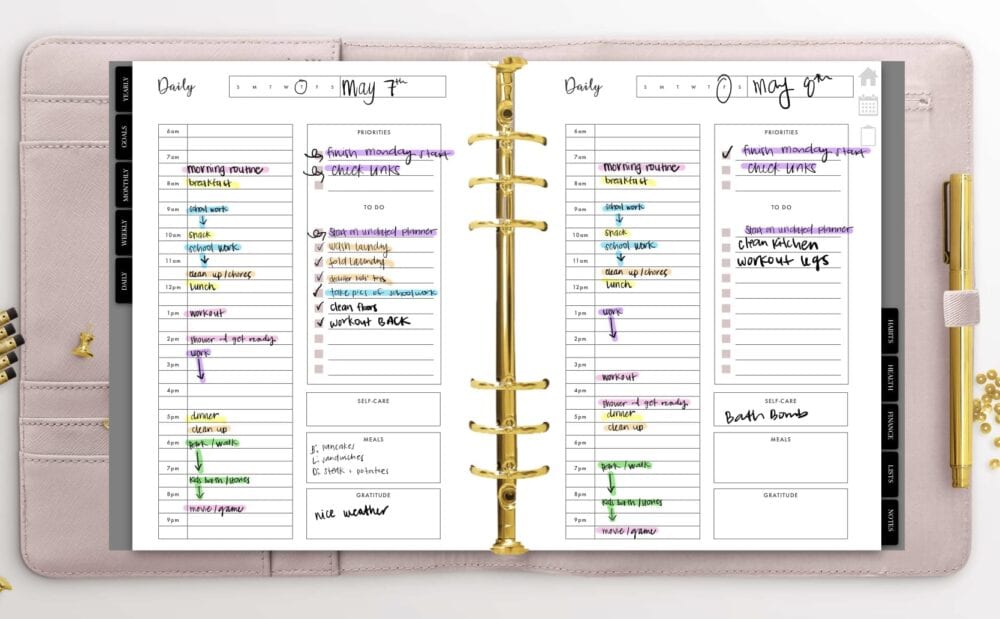 YEARLY
GOALS
MONTHLY
WEEKLY
DAILY
Daily
S M T W T F S
May 7th
6am
7am
morning routine
8am
breakfast
9am
school work
10am
snack
school work
11am
clean up/chores
12pm
lunch
1pm
workout
2pm
shower + get ready
work
3pm
4pm
5pm
dinner
clean up
6pm
park/walk
7pm
8pm
kids bath/stories
movie/game
9pm
PRIORITIES
finish monday start
check links
TO DO
start on undated planner
wash laundry
fold laundry
take pics of schoolwork
clean floors
workout BACK
SELF-CARE
MEALS
B: pancakes
L: sandwiches
D: steak + potatoes
GRATITUDE
nice weather
Daily
S M T W T F S
May 8th
6am
7am
morning routine
8am
breakfast
9am
school work
10am
snack
school work
11am
clean up/chores
12pm
lunch
1pm
work
2pm
3pm
workout
4pm
shower + get ready
5pm
dinner
clean up
6pm
7pm
park/walk
8pm
kids bath/stories
9pm
movie/game
PRIORITIES
finish monday start
check links
TO DO
start on undated planner
clean kitchen
workout legs
SELF-CARE
Bath Bomb
MEALS
GRATITUDE
HABITS
HEALTH
FINANCE
LISTS
NOTES